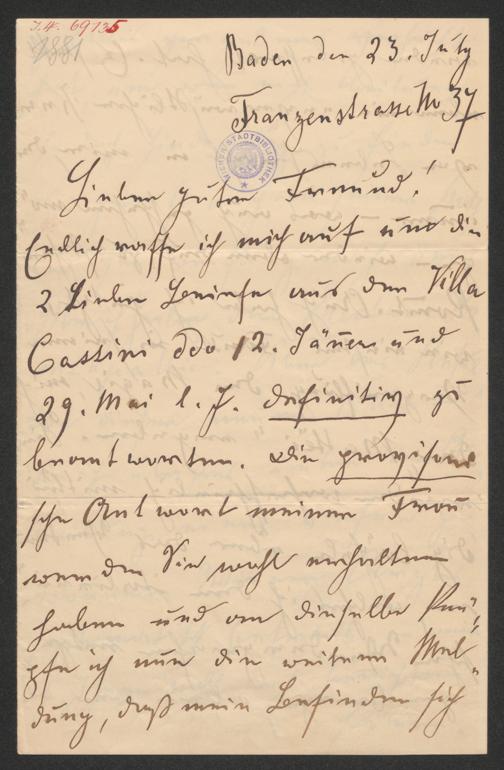 I.N. 69135
1881
Baden den 23. July
Franzensstrasse No 37
WIENER STADTBIBLIOTHEK
Lieber guter Freund!
Endlich raffe ich mich auf und die
2 Lieben Briefe aus der Villa
Cassini ddo 12. Jäner und
29. Mai l. J. definitiv zu
beantworten. Die provisori
sche Antwort meiner Frau
werden Sie wohl erhalten
haben und an dieselbe knü„
pfe ich nun die weitere Mel„
dung, daß mein Befinden sich